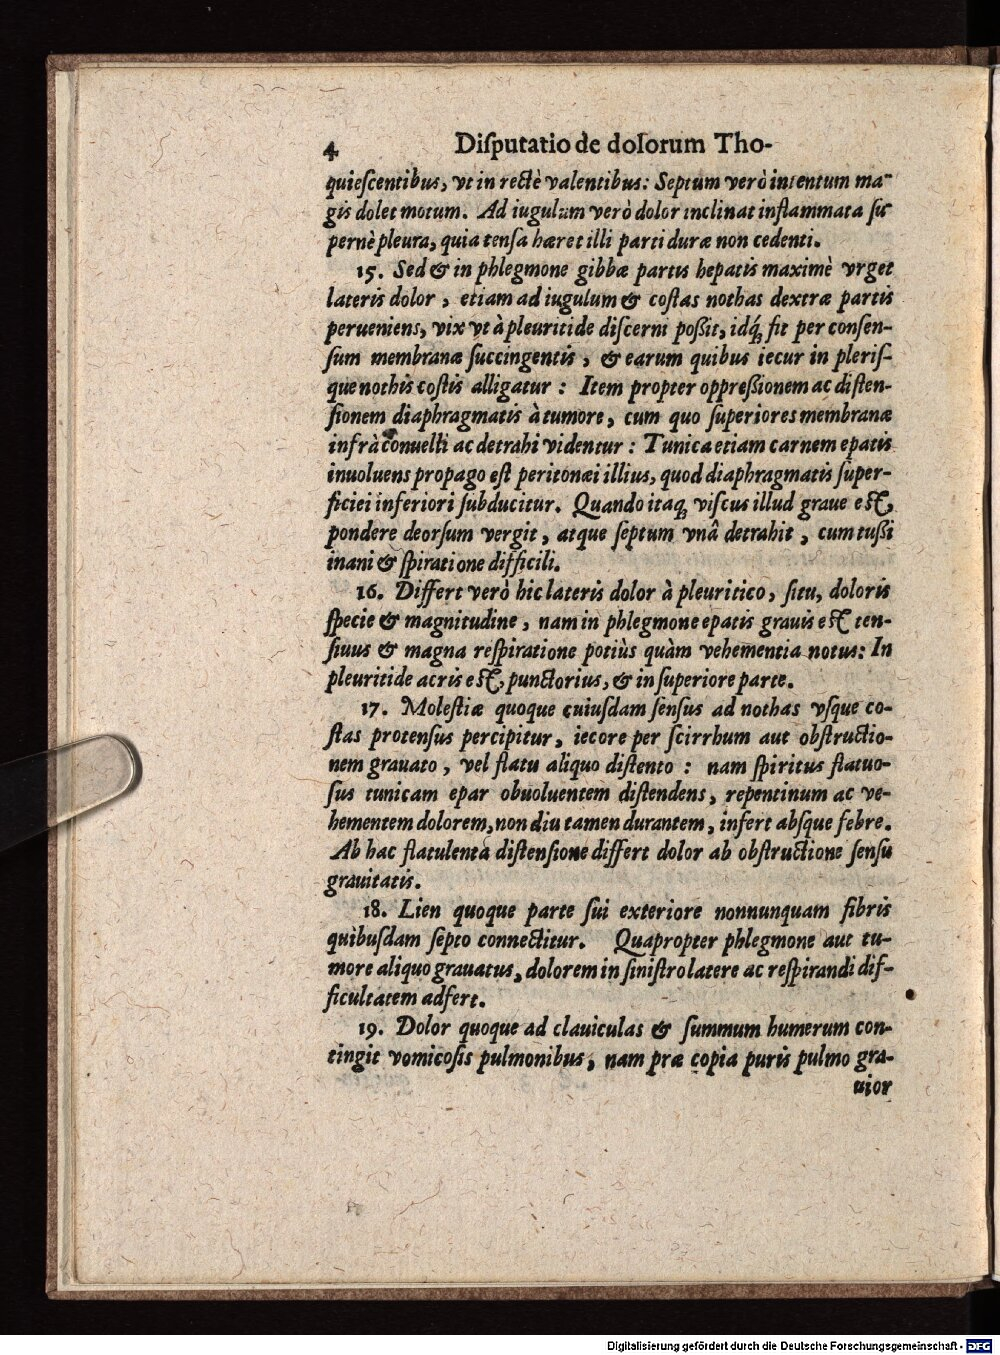 4 Diſputatio de dolorum Tho-
quieſcentibus, vt in rectè valentibus: Septum verò intentum ma-
gis dolet motum. Ad iugulum verò dolor inclinat inflammata ſu-
pernè pleura, quia tenſa hæret illi parti duræ non cedenti.
15. Sed & in phlegmone gibbæ partis hepatis maximè vrget
lateris dolor, etiam ad iugulum & coſtas nothas dextræ partis
perueniens, vix vt à pleuritide diſcerni poßit, idq́; fit per conſen-
ſum membranæ ſuccingentis, & earum quibus iecur in pleriſ-
que nothis coſtis alligatur: Item propter oppreßionem ac diſten-
ſionem diaphragmatis à tumore, cum quo ſuperiores membranæ
infrà conuelli ac detrahi videntur: Tunica etiam carnem epatis
inuoluens propago eſt peritonæi illius, quod diaphragmatis ſuper-
ficiei inferiori ſubducitur. Quando itaq; viſcus illud graue eſt,
pondere deorſum vergit, atque ſeptum vnâ detrahit, cum tußi
inani & ſpiratione difficili.
16. Differt verò hic lateris dolor à pleuritico, ſitu, doloris
ſpecie & magnitudine, nam in phlegmone epatis grauis eſt ten-
ſiuus & magna reſpiratione potiùs quàm vehementia notus: In
pleuritide acris eſt, punctorius, & in ſuperiore parte.
17. Moleſtiæ quoque cuiuſdam ſenſus ad nothas vſque co-
ſtas protenſus percipitur, iecore per ſcirrhum aut obſtructio-
nem grauato, vel flatu aliquo diſtento: nam ſpiritus flatuo-
ſus tunicam epar obuoluentem diſtendens, repentinum ac ve-
hementem dolorem, non diu tamen durantem, infert abſque febre.
Ab hac flatulenta diſtenſione differt dolor ab obſtructione ſenſu
grauitatis.
18. Lien quoque parte ſui exteriore nonnunquam fibris
quibuſdam ſepto connectitur. Quapropter phlegmone aut tu-
more aliquo grauatus, dolorem in ſiniſtro latere ac reſpirandi dif-
ficultatem adfert.
19. Dolor quoque ad clauiculas & ſummum humerum con-
tingit vomicoſis pulmonibus, nam præ copia puris pulmo gra-
uior
Digitalisierung gefördert durch die Deutsche Forschungsgemeinschaft - DFG